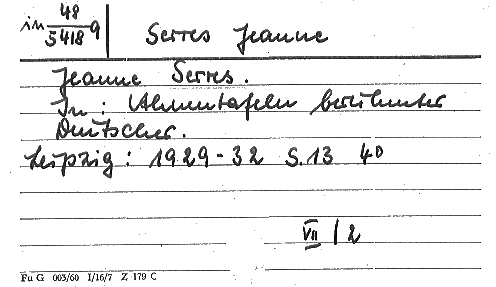 in 48
5418 9 Serres Jeanne
Jeanne Serres.
In: Ahnentafeln berühmter
Deutscher.
Leipzig: 1929-32 S. 13 4°
VII / 2
Fu G 003/60 I/16/7 Z 179 C